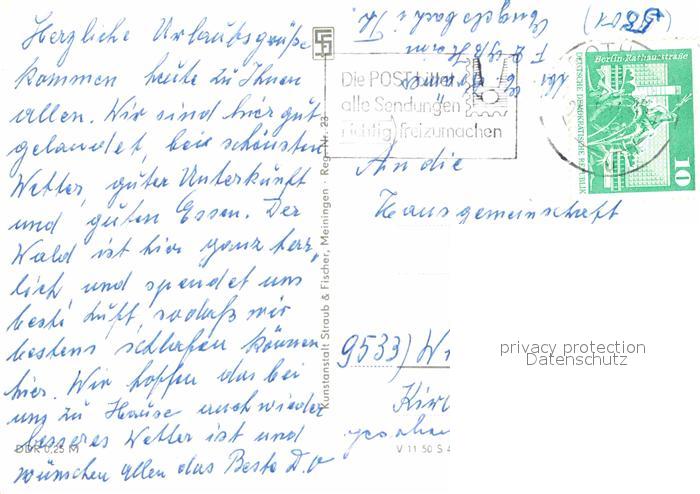 Herzliche Urlaubsgrüße
kommen heute zu Ihnen
allen. Wir sind hier gut
gelandet, bei schönstem
Wetter, guter Unterkunft
und guten Essen. Der
Wald ist hier ganz herr,
lich und spendet uns
beste Luft, sodaß wir
bestens schlafen können
hier. Wir hoffen das bei
uns zu Hause auch wieder
besseres Wetter ist und
wünschen allen das Beste
DDR 0,25 M
Kunstanstalt Straub & Fischer, Meiningen · Reg.-Nr. 23
V 11 50 S 4
(5801)
Engelsbach i. Th.
Die POST bittet
alle Sendungen
richtig freizumachen
Berlin-Rathausstraße
DEUTSCHE DEMOKRATISCHE REPUBLIK
10
An die
Hausgemeinschaft
9533) Wi
Kirc
privacy protection
Datenschutz